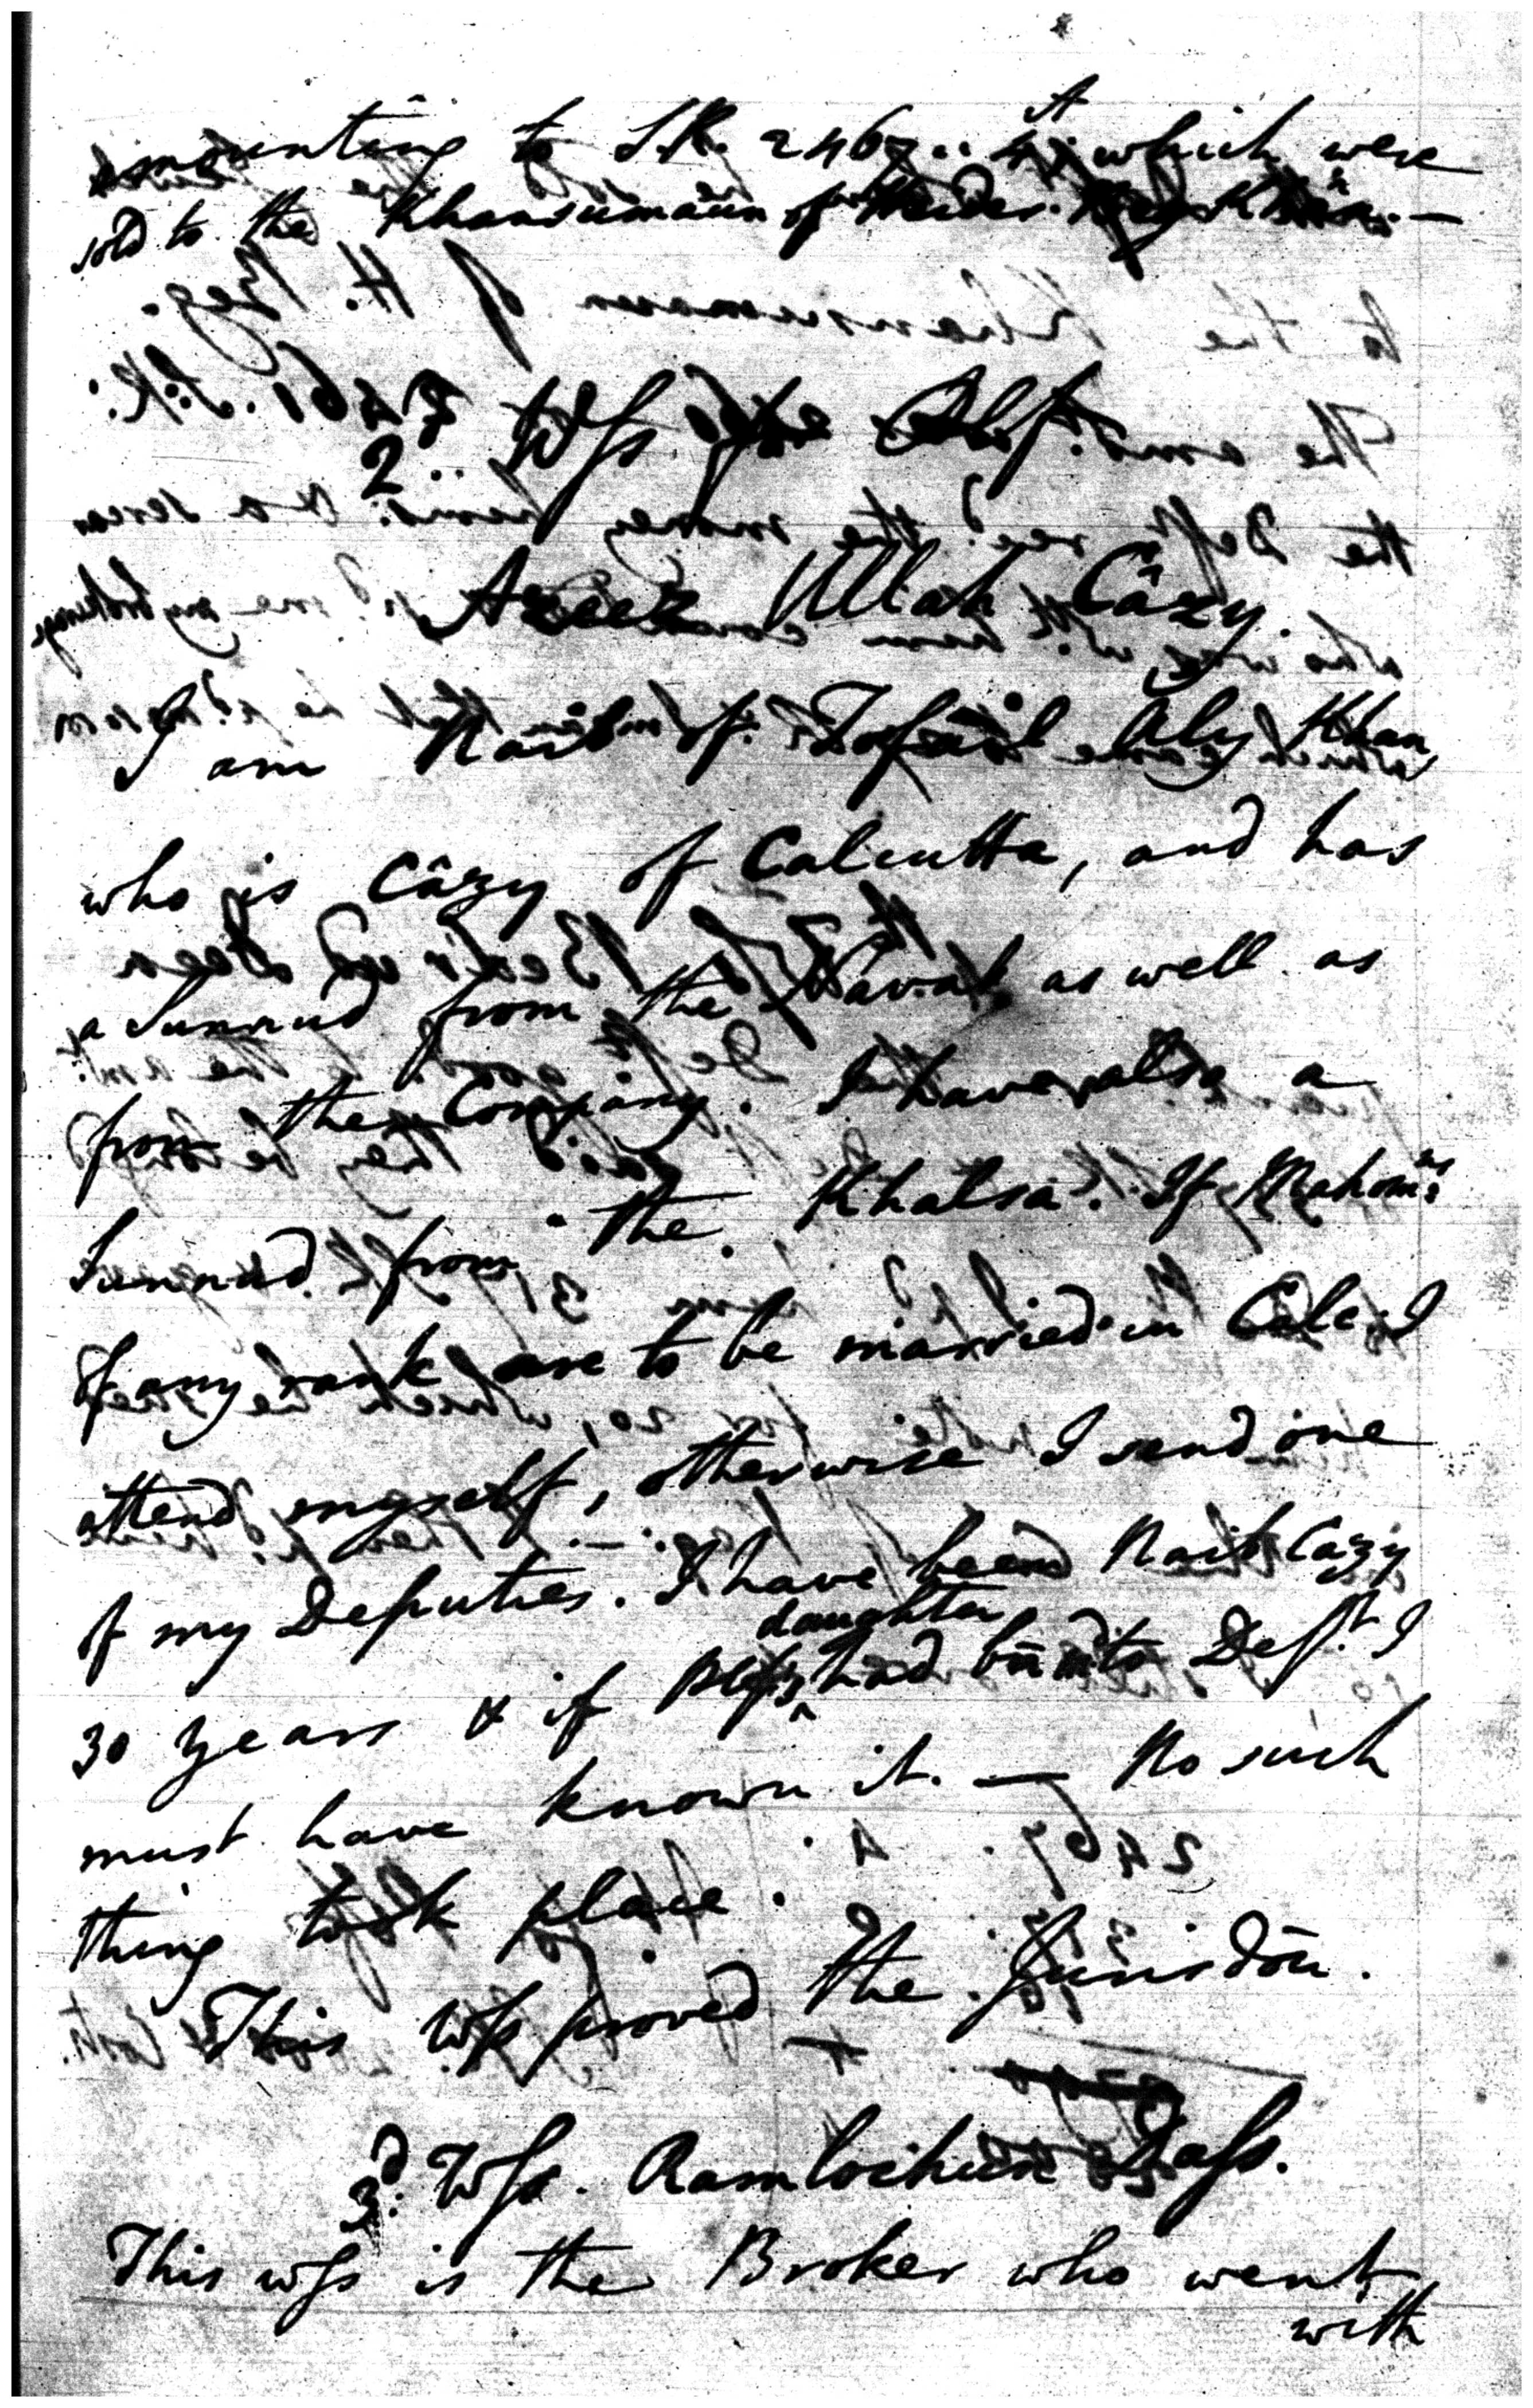 amounting to S.R. 2467.. 4 A which were
sold to the Khansumaun of Haider Beg Khan. —
2.. Wss for Plf.
Azeez Ullah Câzy.
I am Naib of Tofail Aly Khan
who is Câzy of Calcutta, and has
a Sunnud from the Navab as well as
from the Company. I have also a
Sunnud from the Khalsa. If Mahomns
of any rank are to be married in Calc. I
attend myself, otherwise I send one
of my Deputies. I have been Naib Cazy
30 years & if Plf's daughter had been md to Deft. I
must have known it. — No such
thing took place.
This Wss proved the Jurisdōn.
3d. Wss. Ramlochun Dass.
This wss is the Broker who went
with